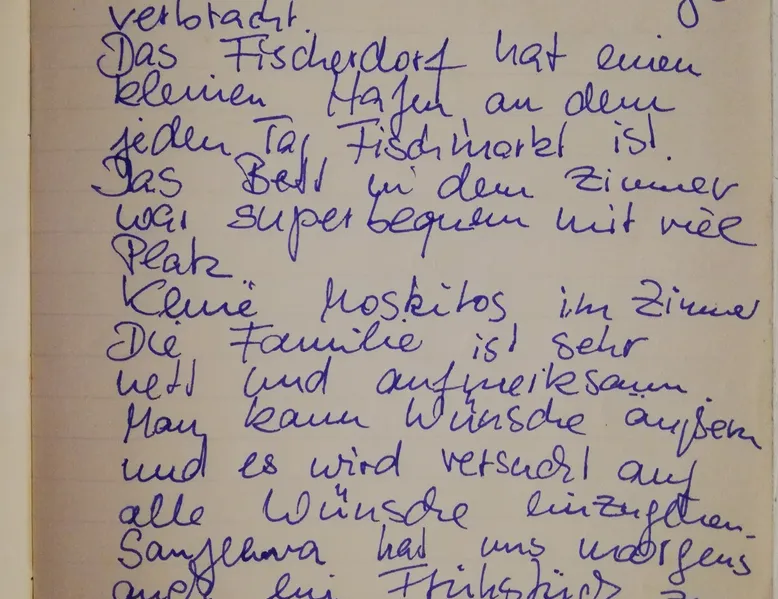 verbracht.
Das Fischerdorf hat einen
kleinen Hafen, an dem
jeden Tag Fischmarkt ist.
Das Bett in dem Zimmer
war super bequem mit viel
Platz
Keine Moskitos im Zimmer
Die Familie ist sehr
nett und aufmerksam.
Man kann Wünsche äußern
und es wird versucht auf
alle Wünsche einzugehen.
hat uns morgens
auch ein Frühstück